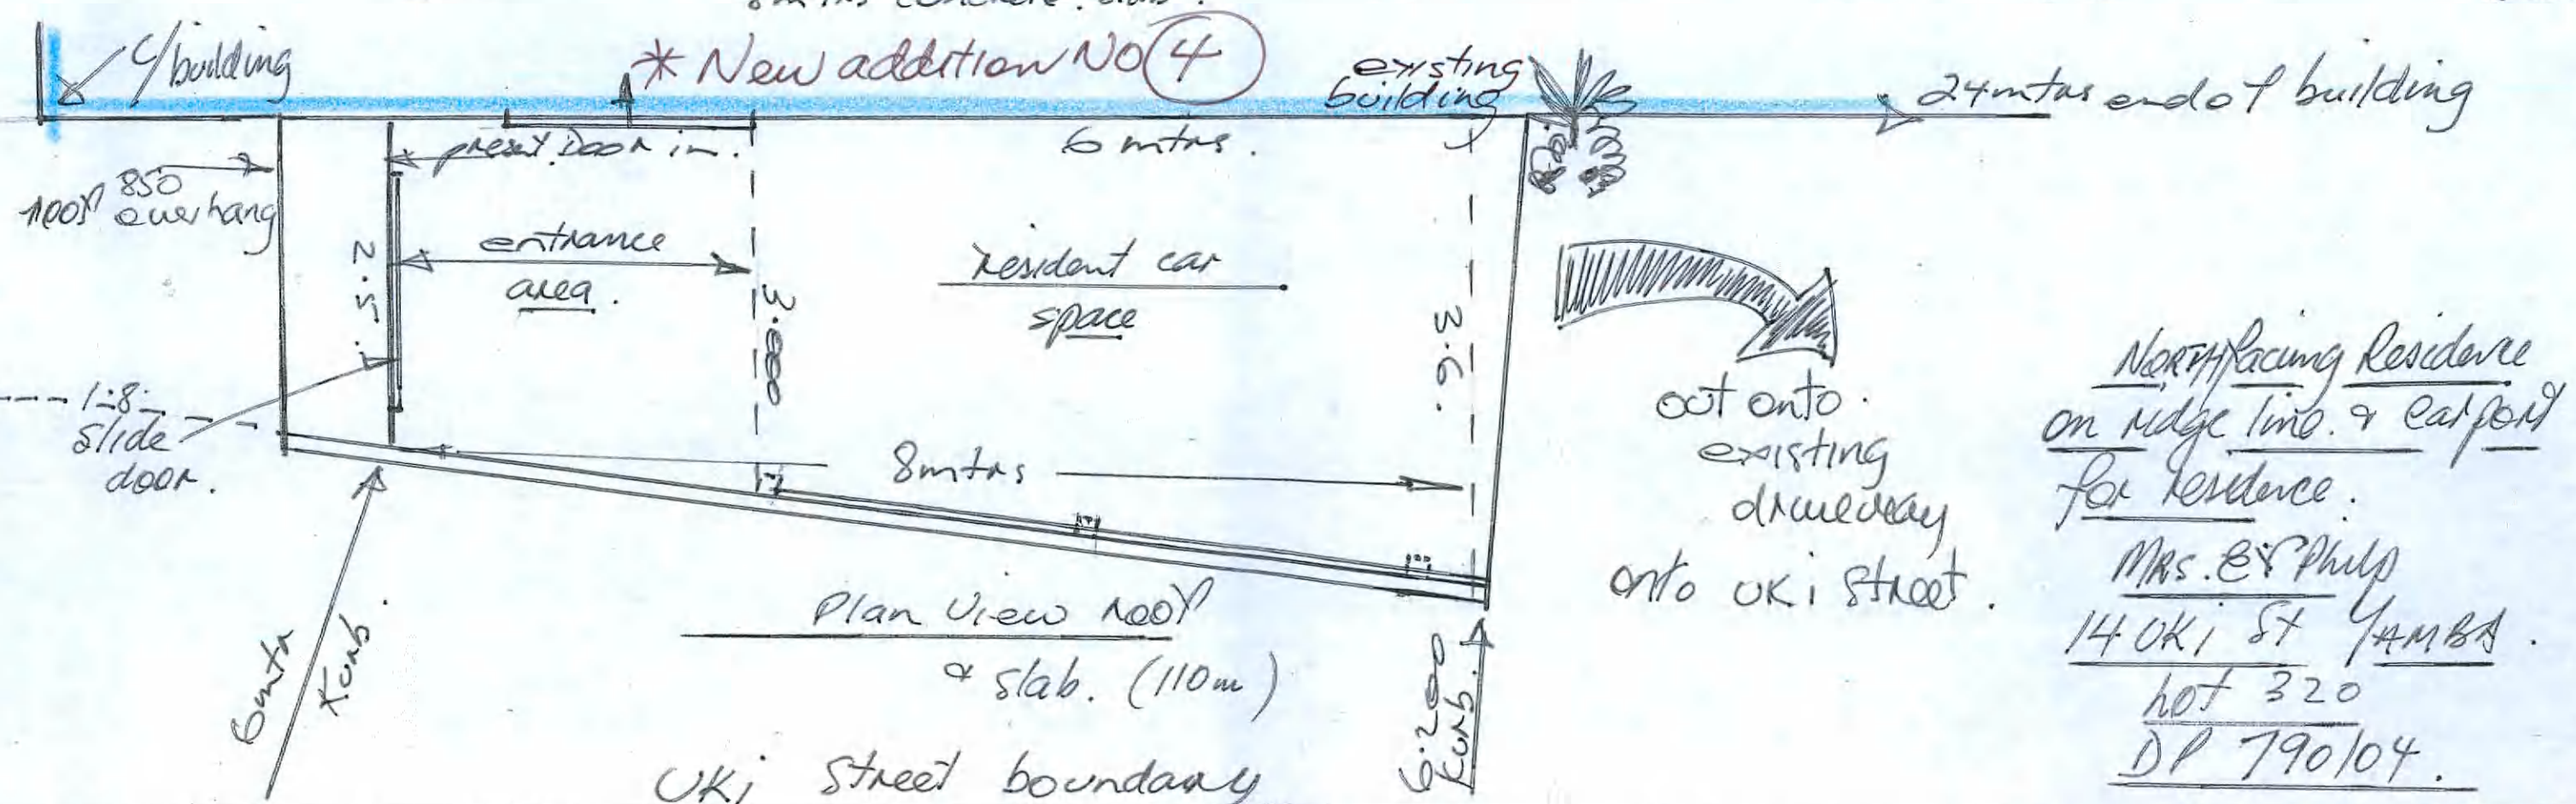 * New addition NO 4
C/building
existing
building
24 mtrs end of building
present Door in.
6 mtrs.
850
roof overhang
2.5
entrance
area.
3.000
resident car
space
3.6.
1.8
slide
door.
8 mtrs
out onto.
existing
driveway
onto UKi Street.
NORTH facing Residence
on ridge line. & Carport
for residence.
MRS.
Philp
14 UKi St YAMBA.
Lot 320
DP 790104.
Plan View roof
& slab. (110m)
6 mtr
Kurb.
6.200
Kurb.
UKi Street boundary